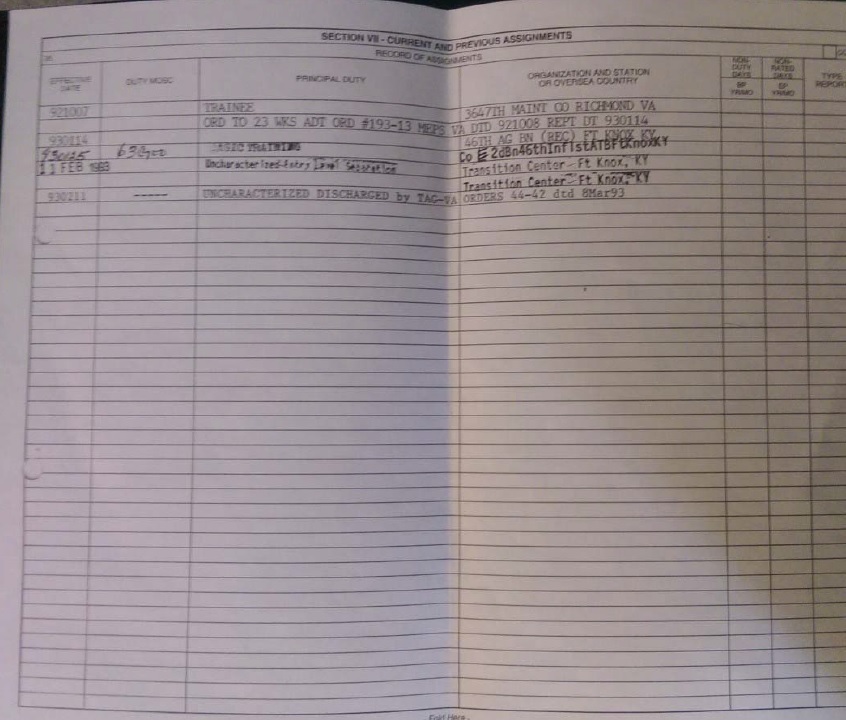 SECTION VII - CURRENT AND PREVIOUS ASSIGNMENTS
RECORD OF ASSIGNMENTS
EFFECTIVE DATE DUTY MOSC PRINCIPAL DUTY ORGANIZATION AND STATION OR OVERSEA COUNTRY NON-DUTY DAYS NON-RATED DAYS TYPE REPORT
SP YR/MO SP YR/MO
921007 TRAINEE 3647TH MAINT CO RICHMOND VA
ORD TO 23 WKS ADT ORD #193-13 MEPS VA DTD 921008 REPT DT 930114
930114 46TH AG BN (REC) FT KNOX KY
930125 BASIC TRAINING Co E 2dBn46thInf1stATBFtKnoxKY
11 FEB 1993 Uncharacterized-Entry Level Separation Transition Center - Ft Knox, KY
Transition Center - Ft Knox, KY
930211 ----- UNCHARACTERIZED DISCHARGED by TAG-VA ORDERS 44-42 dtd 8Mar93
Fold Here -